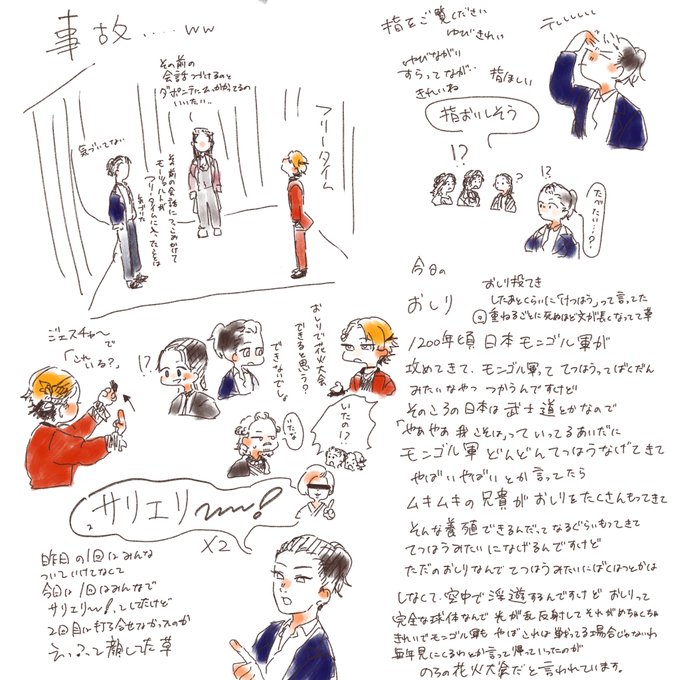 事故....ww
その前の
会話つづけるのと
ダ・ポンテにふっかけてるの
いいたい..
気づいてない
その前の会話につっこみかけて
モーツァルトが
フリータイムに入ったことは
気づいた
フリータイム
ジェスチャ〜
で
「これいる?」
!?
おしりで花火大会
できると思う?
できないでしょ
いたの!?
いたな
サリエリ〜〜!
×2
昨日の1回はみんな
ついていけてなくて
今日は1回はみんなで
サリエリ〜!としてたけど
2回目は打ち合せなかったのか
えっ?て顔してた草
指をご覧ください
ゆびきれい
ゆびながい
すらってなが..
きれいね
指ほしい
テレレレレレ
指おいしそう
!?
?
!?
たべたい…?
今日の
おしり
おしり投てき
したあとくらいに「けつほう」って言ってた
回重ねるごとに死ぬほど文が長くなってて草
1200年頃 日本モンゴル軍が
攻めてきて、モンゴル軍って てつほうってばくだん
みたいなやつ つかうんですけど
そのころの日本は武士道とかなので
「やあやあ我こそは」っていってるあいだに
モンゴル軍どんどんてつほうなげてきて
やばいやばいとか言ってたら
ムキムキの兄貴がおしりをたくさんもってきて
そんな養殖できるんだってなるぐらいもってきて
てつほうみたいになげるんですけど
ただのおしりなんで てつほうみたいにばくはつとかは
しなくて、空中で浮遊するんですけど おしりって
完全な球体なんで 光が乱反射して それがめちゃくちゃ
きれいでモンゴル軍も やばこれは戦ってる場合じゃないわ
毎年見にくるわとか言って帰っていったのが
のちの花火大会だと言われています。